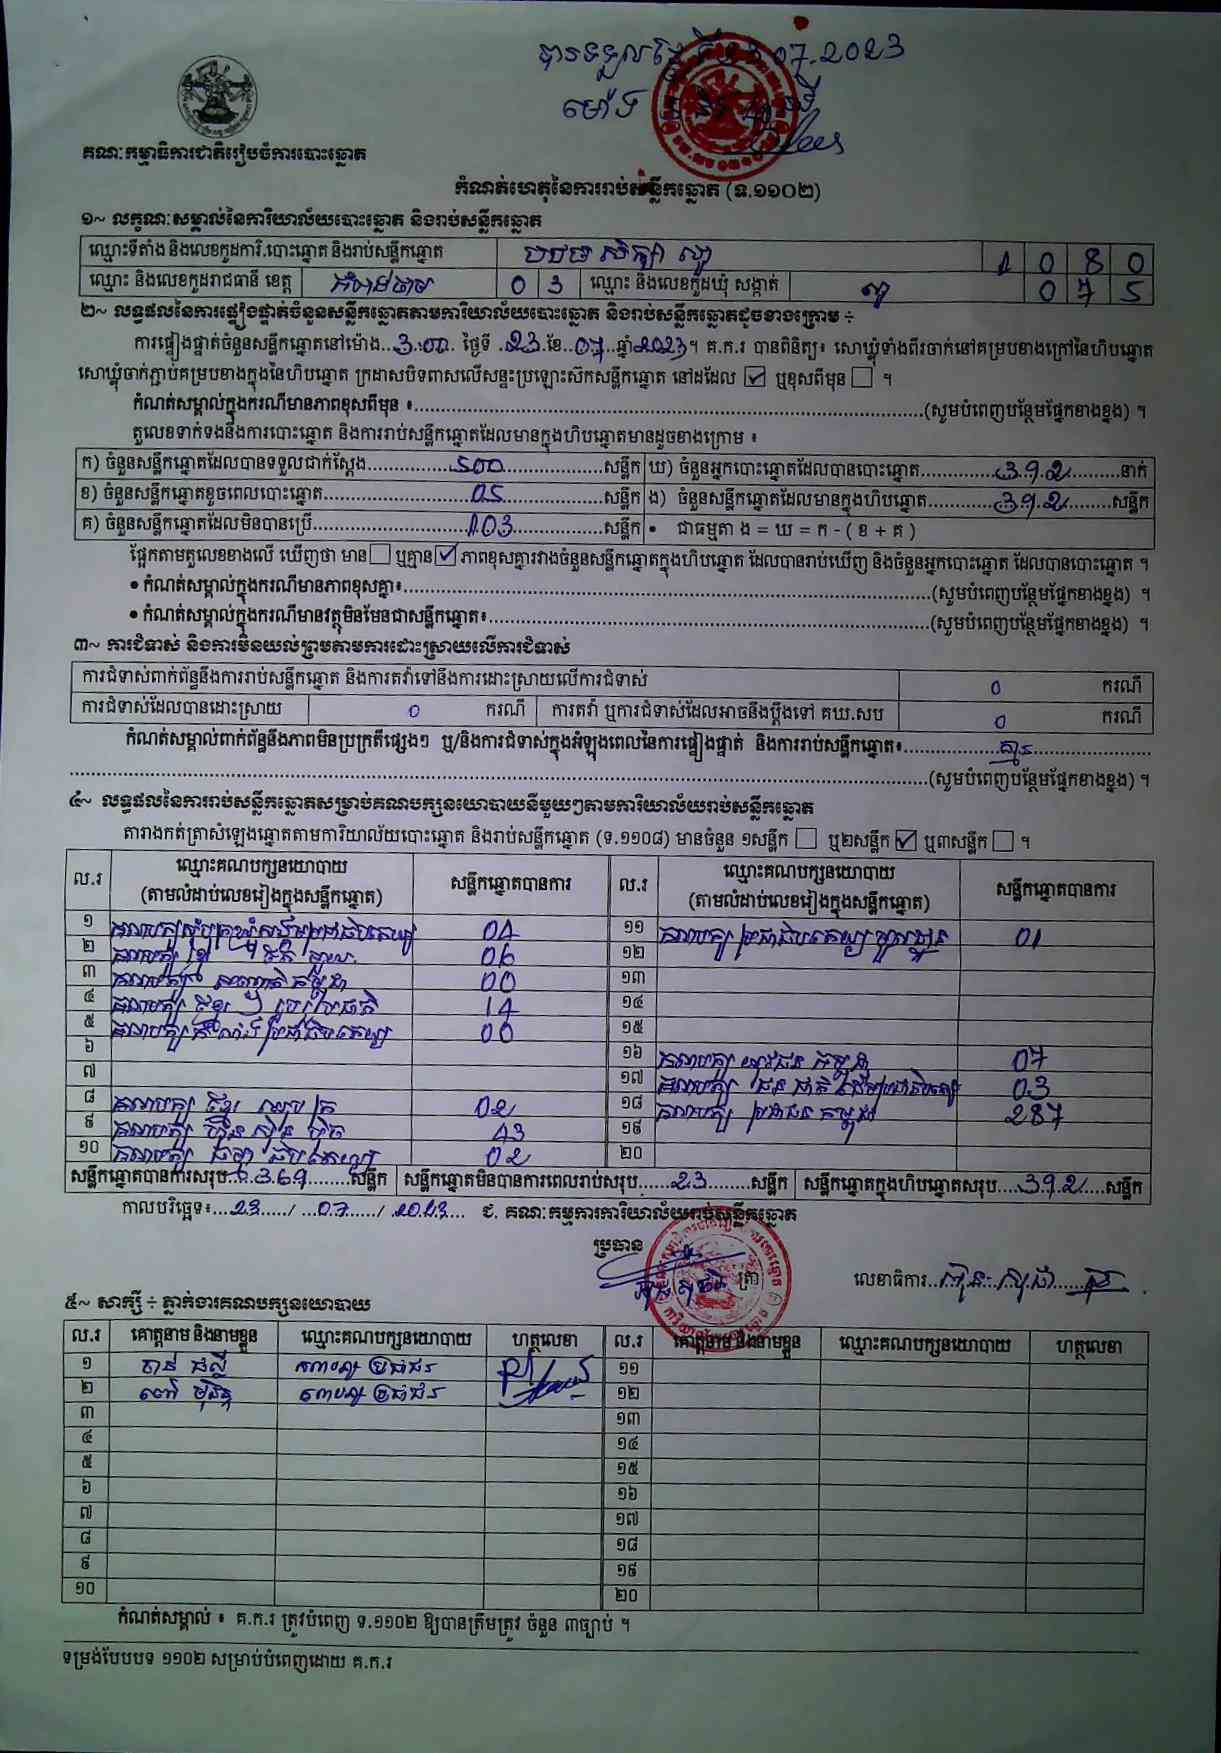 បានទទួលថ្ងៃទី 07.2023
ម៉ោង
គណៈកម្មាធិការជាតិរៀបចំការបោះឆ្នោត
កំណត់ហេតុនៃការរាប់សន្លឹកឆ្នោត (ទ.១១០២)
១~ លក្ខណៈសម្គាល់នៃការិយាល័យបោះឆ្នោត និងរាប់សន្លឹកឆ្នោត
ឈ្មោះទីតាំង និងលេខកូដការិ.បោះឆ្នោត និងរាប់សន្លឹកឆ្នោត បឋមសិក្សា ល្វា 1 0 8 0
ឈ្មោះ និងលេខកូដរាជធានី ខេត្ត កំពង់ចាម 0 3 ឈ្មោះ និងលេខកូដឃុំ សង្កាត់ ល្វា 0 7 5
២~ លទ្ធផលនៃការផ្ទៀងផ្ទាត់ចំនួនសន្លឹកឆ្នោតតាមការិយាល័យបោះឆ្នោត និងរាប់សន្លឹកឆ្នោតដូចខាងក្រោម ÷
ការផ្ទៀងផ្ទាត់ចំនួនសន្លឹកឆ្នោតនៅម៉ោង..3:00.. ថ្ងៃទី .23.ខែ..07..ឆ្នាំ2023។ គ.ក.រ បានពិនិត្យ៖ សោឃ្លុំទាំងពីរចាក់នៅគម្របខាងក្រៅនៃហិបឆ្នោត
សោឃ្លុំចាក់ភ្ជាប់គម្របខាងក្នុងនៃហិបឆ្នោត ក្រដាសបិទពាសលើសន្ទះប្រឡោះស៊កសន្លឹកឆ្នោត នៅដដែល ☑ ឬខុសពីមុន ☐ ។
កំណត់សម្គាល់ក្នុងករណីមានភាពខុសពីមុន ៖..........(សូមបំពេញបន្ថែមផ្នែកខាងខ្នង) ។
តួលេខទាក់ទងនឹងការបោះឆ្នោត និងការរាប់សន្លឹកឆ្នោតដែលមានក្នុងហិបឆ្នោតមានដូចខាងក្រោម ៖
ក) ចំនួនសន្លឹកឆ្នោតដែលបានទទួលជាក់ស្តែង.......500.......សន្លឹក ឃ) ចំនួនអ្នកបោះឆ្នោតដែលបានបោះឆ្នោត.......392.......នាក់
ខ) ចំនួនសន្លឹកឆ្នោតខូចពេលបោះឆ្នោត.......05.......សន្លឹក ង) ចំនួនសន្លឹកឆ្នោតដែលមានក្នុងហិបឆ្នោត.......392.......សន្លឹក
គ) ចំនួនសន្លឹកឆ្នោតដែលមិនបានប្រើ.......103.......សន្លឹក • ជាធម្មតា ង = ឃ = ក - ( ខ + គ )
ផ្អែកតាមតួលេខខាងលើ ឃើញថា មាន☐ ឬគ្មាន☑ ភាពខុសគ្នារវាងចំនួនសន្លឹកឆ្នោតក្នុងហិបឆ្នោត ដែលបានរាប់ឃើញ និងចំនួនអ្នកបោះឆ្នោត ដែលបានបោះឆ្នោត ។
• កំណត់សម្គាល់ក្នុងករណីមានភាពខុសគ្នា៖..........(សូមបំពេញបន្ថែមផ្នែកខាងខ្នង) ។
• កំណត់សម្គាល់ក្នុងករណីមានវត្ថុមិនមែនជាសន្លឹកឆ្នោត៖..........(សូមបំពេញបន្ថែមផ្នែកខាងខ្នង) ។
៣~ ការជំទាស់ និងការមិនយល់ព្រមតាមការដោះស្រាយលើការជំទាស់
ការជំទាស់ពាក់ព័ន្ធនឹងការរាប់សន្លឹកឆ្នោត និងការតវ៉ាទៅនឹងការដោះស្រាយលើការជំទាស់ 0 ករណី
ការជំទាស់ដែលបានដោះស្រាយ 0 ករណី ការតវ៉ា ឬការជំទាស់ដែលអាចនឹងប្តឹងទៅ គឃ.សប 0 ករណី
កំណត់សម្គាល់ពាក់ព័ន្ធនឹងភាពមិនប្រក្រតីផ្សេងៗ ឬ/និងការជំទាស់ក្នុងអំឡុងពេលនៃការផ្ទៀងផ្ទាត់ និងការរាប់សន្លឹកឆ្នោត៖.......គ្មាន.......
..........(សូមបំពេញបន្ថែមផ្នែកខាងខ្នង) ។
៤~ លទ្ធផលនៃការរាប់សន្លឹកឆ្នោតសម្រាប់គណបក្សនយោបាយនីមួយៗតាមការិយាល័យរាប់សន្លឹកឆ្នោត
តារាងកត់ត្រាសំឡេងឆ្នោតតាមការិយាល័យបោះឆ្នោត និងរាប់សន្លឹកឆ្នោត (ទ.១១០៨) មានចំនួន ១សន្លឹក ☐ ឬ២សន្លឹក ☑ ឬ៣សន្លឹក ☐ ។
ល.រ ឈ្មោះគណបក្សនយោបាយ (តាមលំដាប់លេខរៀងក្នុងសន្លឹកឆ្នោត) សន្លឹកឆ្នោតបានការ ល.រ ឈ្មោះគណបក្សនយោបាយ (តាមលំដាប់លេខរៀងក្នុងសន្លឹកឆ្នោត) សន្លឹកឆ្នោតបានការ
១ គណបក្សសំបុកឃ្មុំសង្គមប្រជាធិបតេយ្យ 04 ១១ គណបក្ស ប្រជាធិបតេយ្យមូលដ្ឋាន 01
២ គណបក្ស ខ្មែរ 06 ១២
៣ គណបក្ស កម្ពុជា 00 ១៣
៤ គណបក្ស ខ្មែរ រួបរួមជាតិ 14 ១៤
៥ គណបក្ស កម្លាំងប្រជាធិបតេយ្យ 00 ១៥
៦ ១៦ គណបក្ស យុវជន កម្ពុជា 07
៧ ១៧ គណបក្ស ជនជាតិដើមប្រជាធិបតេយ្យ 03
៨ គណបក្ស ខ្មែរ ឈប់ក្រ 02 ១៨ គណបក្ស ប្រជាជន កម្ពុជា 287
៩ គណបក្ស ហ៊្វុនស៊ិនប៉ិច 43 ១៩
១០ គណបក្ស ធម្មាធិបតេយ្យ 02 ២០
សន្លឹកឆ្នោតបានការសរុប..369.......សន្លឹក សន្លឹកឆ្នោតមិនបានការពេលរាប់សរុប......23.......សន្លឹក សន្លឹកឆ្នោតក្នុងហិបឆ្នោតសរុប....392.....សន្លឹក
កាលបរិច្ឆេទ៖...23...../...07...../...2023... ជ. គណៈកម្មការការិយាល័យរាប់សន្លឹកឆ្នោត
ប្រធាន
ត្រា
លេខាធិការ
៥~ សាក្សី ÷ ភ្នាក់ងារគណបក្សនយោបាយ
ល.រ គោត្តនាម និងនាមខ្លួន ឈ្មោះគណបក្សនយោបាយ ហត្ថលេខា ល.រ គោត្តនាម និងនាមខ្លួន ឈ្មោះគណបក្សនយោបាយ ហត្ថលេខា
១ ចាន់ ផល្លី គណបក្ស ប្រជាជន ១១
២ គណបក្ស ប្រជាជន ១២
៣ ១៣
៤ ១៤
៥ ១៥
៦ ១៦
៧ ១៧
៨ ១៨
៩ ១៩
១០ ២០
កំណត់សម្គាល់ ៖ គ.ក.រ ត្រូវបំពេញ ទ.១១០២ ឱ្យបានត្រឹមត្រូវ ចំនួន ៣ច្បាប់ ។
ទម្រង់បែបបទ ១១០២ សម្រាប់បំពេញដោយ គ.ក.រ